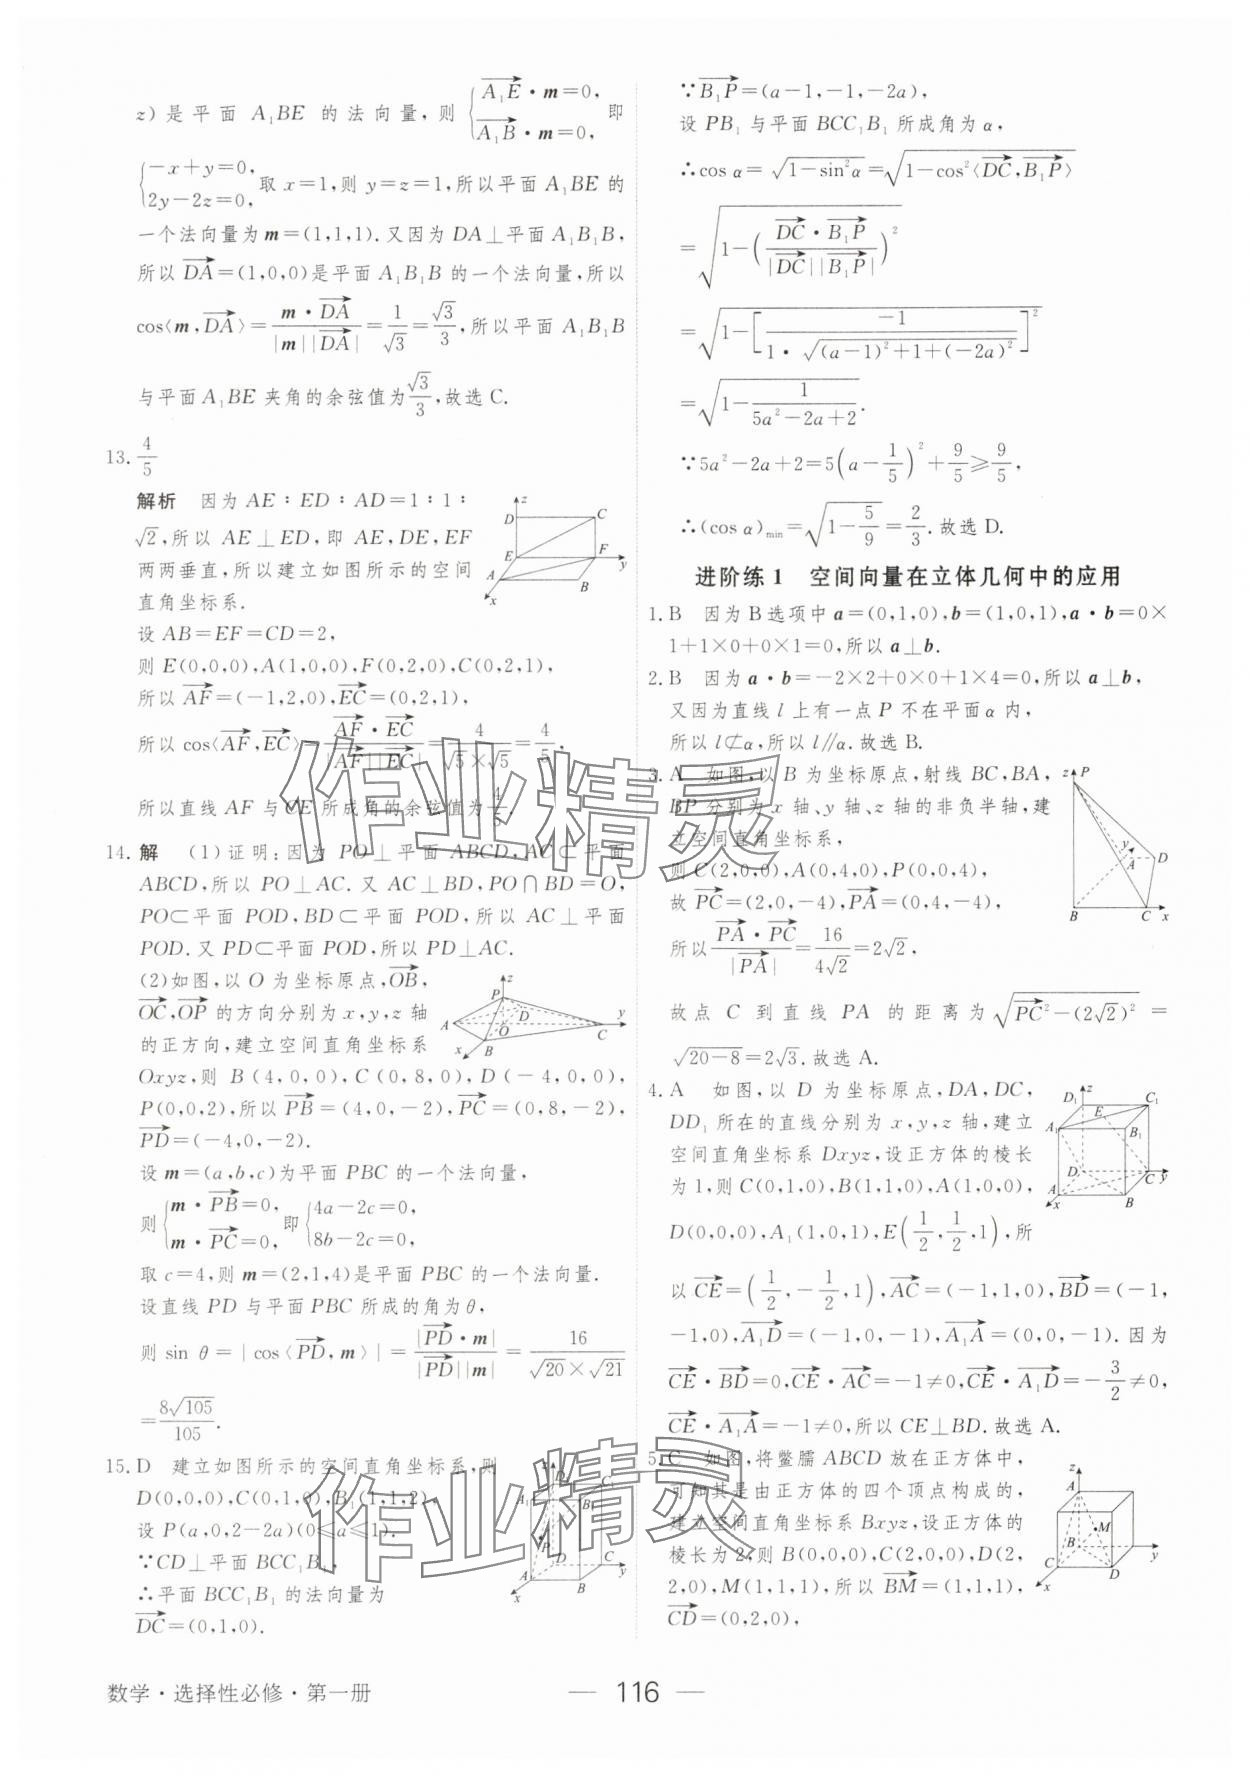 z)是平面 A₁BE 的法向量,则 {A₁E·m=0, A₁B·m=0, 即
{-x+y=0, 2y-2z=0, 取 x=1,则 y=z=1,所以平面 A₁BE 的
一个法向量为 m=(1,1,1).又因为 DA⊥平面 A₁B₁B,
所以 DA=(1,0,0)是平面 A₁B₁B 的一个法向量,所以
cos⟨m,DA⟩=m·DA/|m||DA|=1/√3=√3/3,所以平面 A₁B₁B
与平面 A₁BE 夹角的余弦值为√3/3,故选 C.
13. 4/5
解析 因为 AE∶ED∶AD=1∶1∶
√2,所以 AE⊥ED,即 AE,DE,EF
两两垂直,所以建立如图所示的空间
直角坐标系.
z D C E F y A B x
设 AB=EF=CD=2,
则 E(0,0,0),A(1,0,0),F(0,2,0),C(0,2,1),
所以 AF=(-1,2,0),EC=(0,2,1),
所以 cos⟨AF,EC⟩=AF·EC/|AF||EC|=4/(√5×√5)=4/5,
所以直线 AF 与 CE 所成角的余弦值为4/5.
14. 解 (1)证明:因为 PO⊥平面 ABCD,AC⊂平面
ABCD,所以 PO⊥AC.又 AC⊥BD,PO∩BD=O,
PO⊂平面 POD,BD⊂平面 POD,所以 AC⊥平面
POD.又 PD⊂平面 POD,所以 PD⊥AC.
(2)如图,以 O 为坐标原点,OB,
OC,OP 的方向分别为 x,y,z 轴
的正方向,建立空间直角坐标系
z P D y A O C B x
Oxyz,则 B(4,0,0),C(0,8,0),D(-4,0,0),
P(0,0,2),所以 PB=(4,0,-2),PC=(0,8,-2),
PD=(-4,0,-2).
设 m=(a,b,c)为平面 PBC 的一个法向量,
则{m·PB=0, m·PC=0, 即{4a-2c=0, 8b-2c=0,
取 c=4,则 m=(2,1,4)是平面 PBC 的一个法向量.
设直线 PD 与平面 PBC 所成的角为 θ,
则 sin θ=|cos⟨PD,m⟩|=|PD·m|/|PD||m|=16/(√20×√21)
=8√105/105.
15. D 建立如图所示的空间直角坐标系,则
D(0,0,0),C(0,1,0),B₁(1,1,2),
设 P(a,0,2-2a)(0≤a≤1).
∵CD⊥平面 BCC₁B₁,
∴平面 BCC₁B₁ 的法向量为
DC=(0,1,0).
A₁ B₁ P D C y A B x
∵B₁P=(a-1,-1,-2a),
设 PB₁ 与平面 BCC₁B₁ 所成角为 α,
∴cos α=√(1-sin²α)=√(1-cos²⟨DC,B₁P⟩)
=√(1-(DC·B₁P/|DC||B₁P|)²)
=√(1-[-1/(1·√((a-1)²+1+(-2a)²))]²)
=√(1-1/(5a²-2a+2)).
∵5a²-2a+2=5(a-1/5)²+9/5≥9/5,
∴(cos α)min=√(1-5/9)=2/3.故选 D.
进阶练 1 空间向量在立体几何中的应用
1. B 因为 B 选项中 a=(0,1,0),b=(1,0,1),a·b=0×
1+1×0+0×1=0,所以 a⊥b.
2. B 因为 a·b=-2×2+0×0+1×4=0,所以 a⊥b,
又因为直线 l 上有一点 P 不在平面 α 内,
所以 l⊄α,所以 l∥α.故选 B.
3. A 如图,以 B 为坐标原点,射线 BC,BA,
BP 分别为 x 轴、y 轴、z 轴的非负半轴,建
立空间直角坐标系,
则 C(2,0,0),A(0,4,0),P(0,0,4),
故 PC=(2,0,-4),PA=(0,4,-4),
z P y A D B C x
所以 PA·PC/|PA|=16/4√2=2√2,
故点 C 到直线 PA 的距离为 √(PC²-(2√2)²)=
√(20-8)=2√3.故选 A.
4. A 如图,以 D 为坐标原点,DA,DC,
DD₁ 所在的直线分别为 x,y,z 轴,建立
空间直角坐标系 Dxyz,设正方体的棱长
为 1,则 C(0,1,0),B(1,1,0),A(1,0,0),
D(0,0,0),A₁(1,0,1),E(1/2,1/2,1),所
D₁ z C₁ E A₁ B₁ D C y A x B
以 CE=(1/2,-1/2,1),AC=(-1,1,0),BD=(-1,
-1,0),A₁D=(-1,0,-1),A₁A=(0,0,-1).因为
CE·BD=0,CE·AC=-1≠0,CE·A₁D=-3/2≠0,
CE·A₁A=-1≠0,所以 CE⊥BD.故选 A.
5. C 如图,将鳖臑 ABCD 放在正方体中,
可知其是由正方体的四个顶点构成的,
建立空间直角坐标系 Bxyz,设正方体的
棱长为 2,则 B(0,0,0),C(2,0,0),D(2,
2,0),M(1,1,1),所以 BM=(1,1,1),
CD=(0,2,0),
z A M B y C D x
作业精灵
作业精灵
数学·选择性必修·第一册
— 116 —